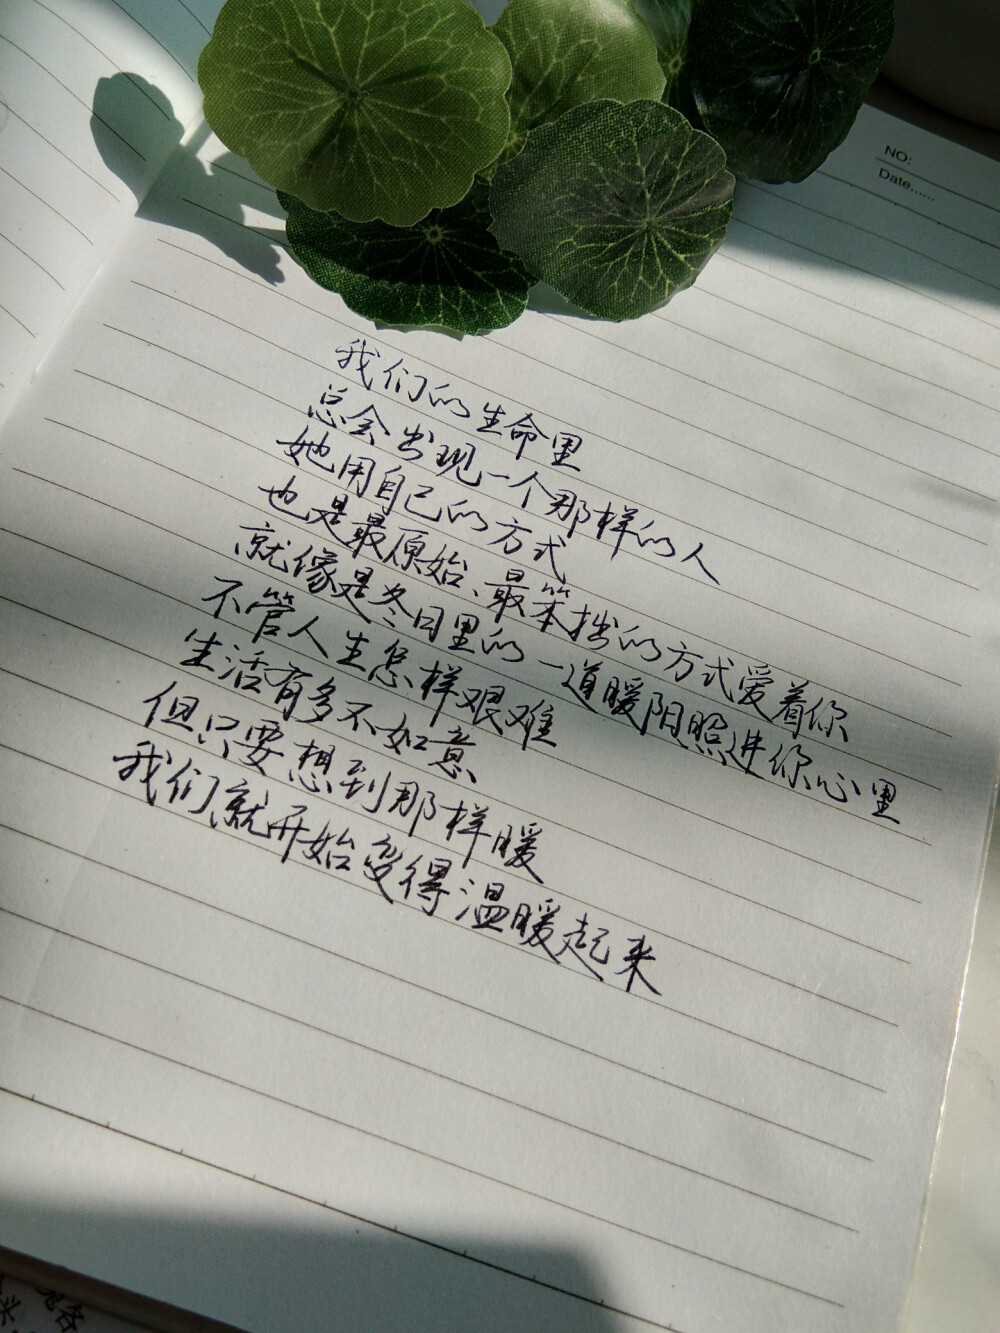 NO:
Date......
我们的生命里
总会出现一个那样的人
她用自己的方式
也是最原始、最笨拙的方式爱着你
就像是冬日里的一道暖阳照进你心里
不管人生怎样艰难
生活有多不如意
但只要想到那样暖
我们就开始变得温暖起来